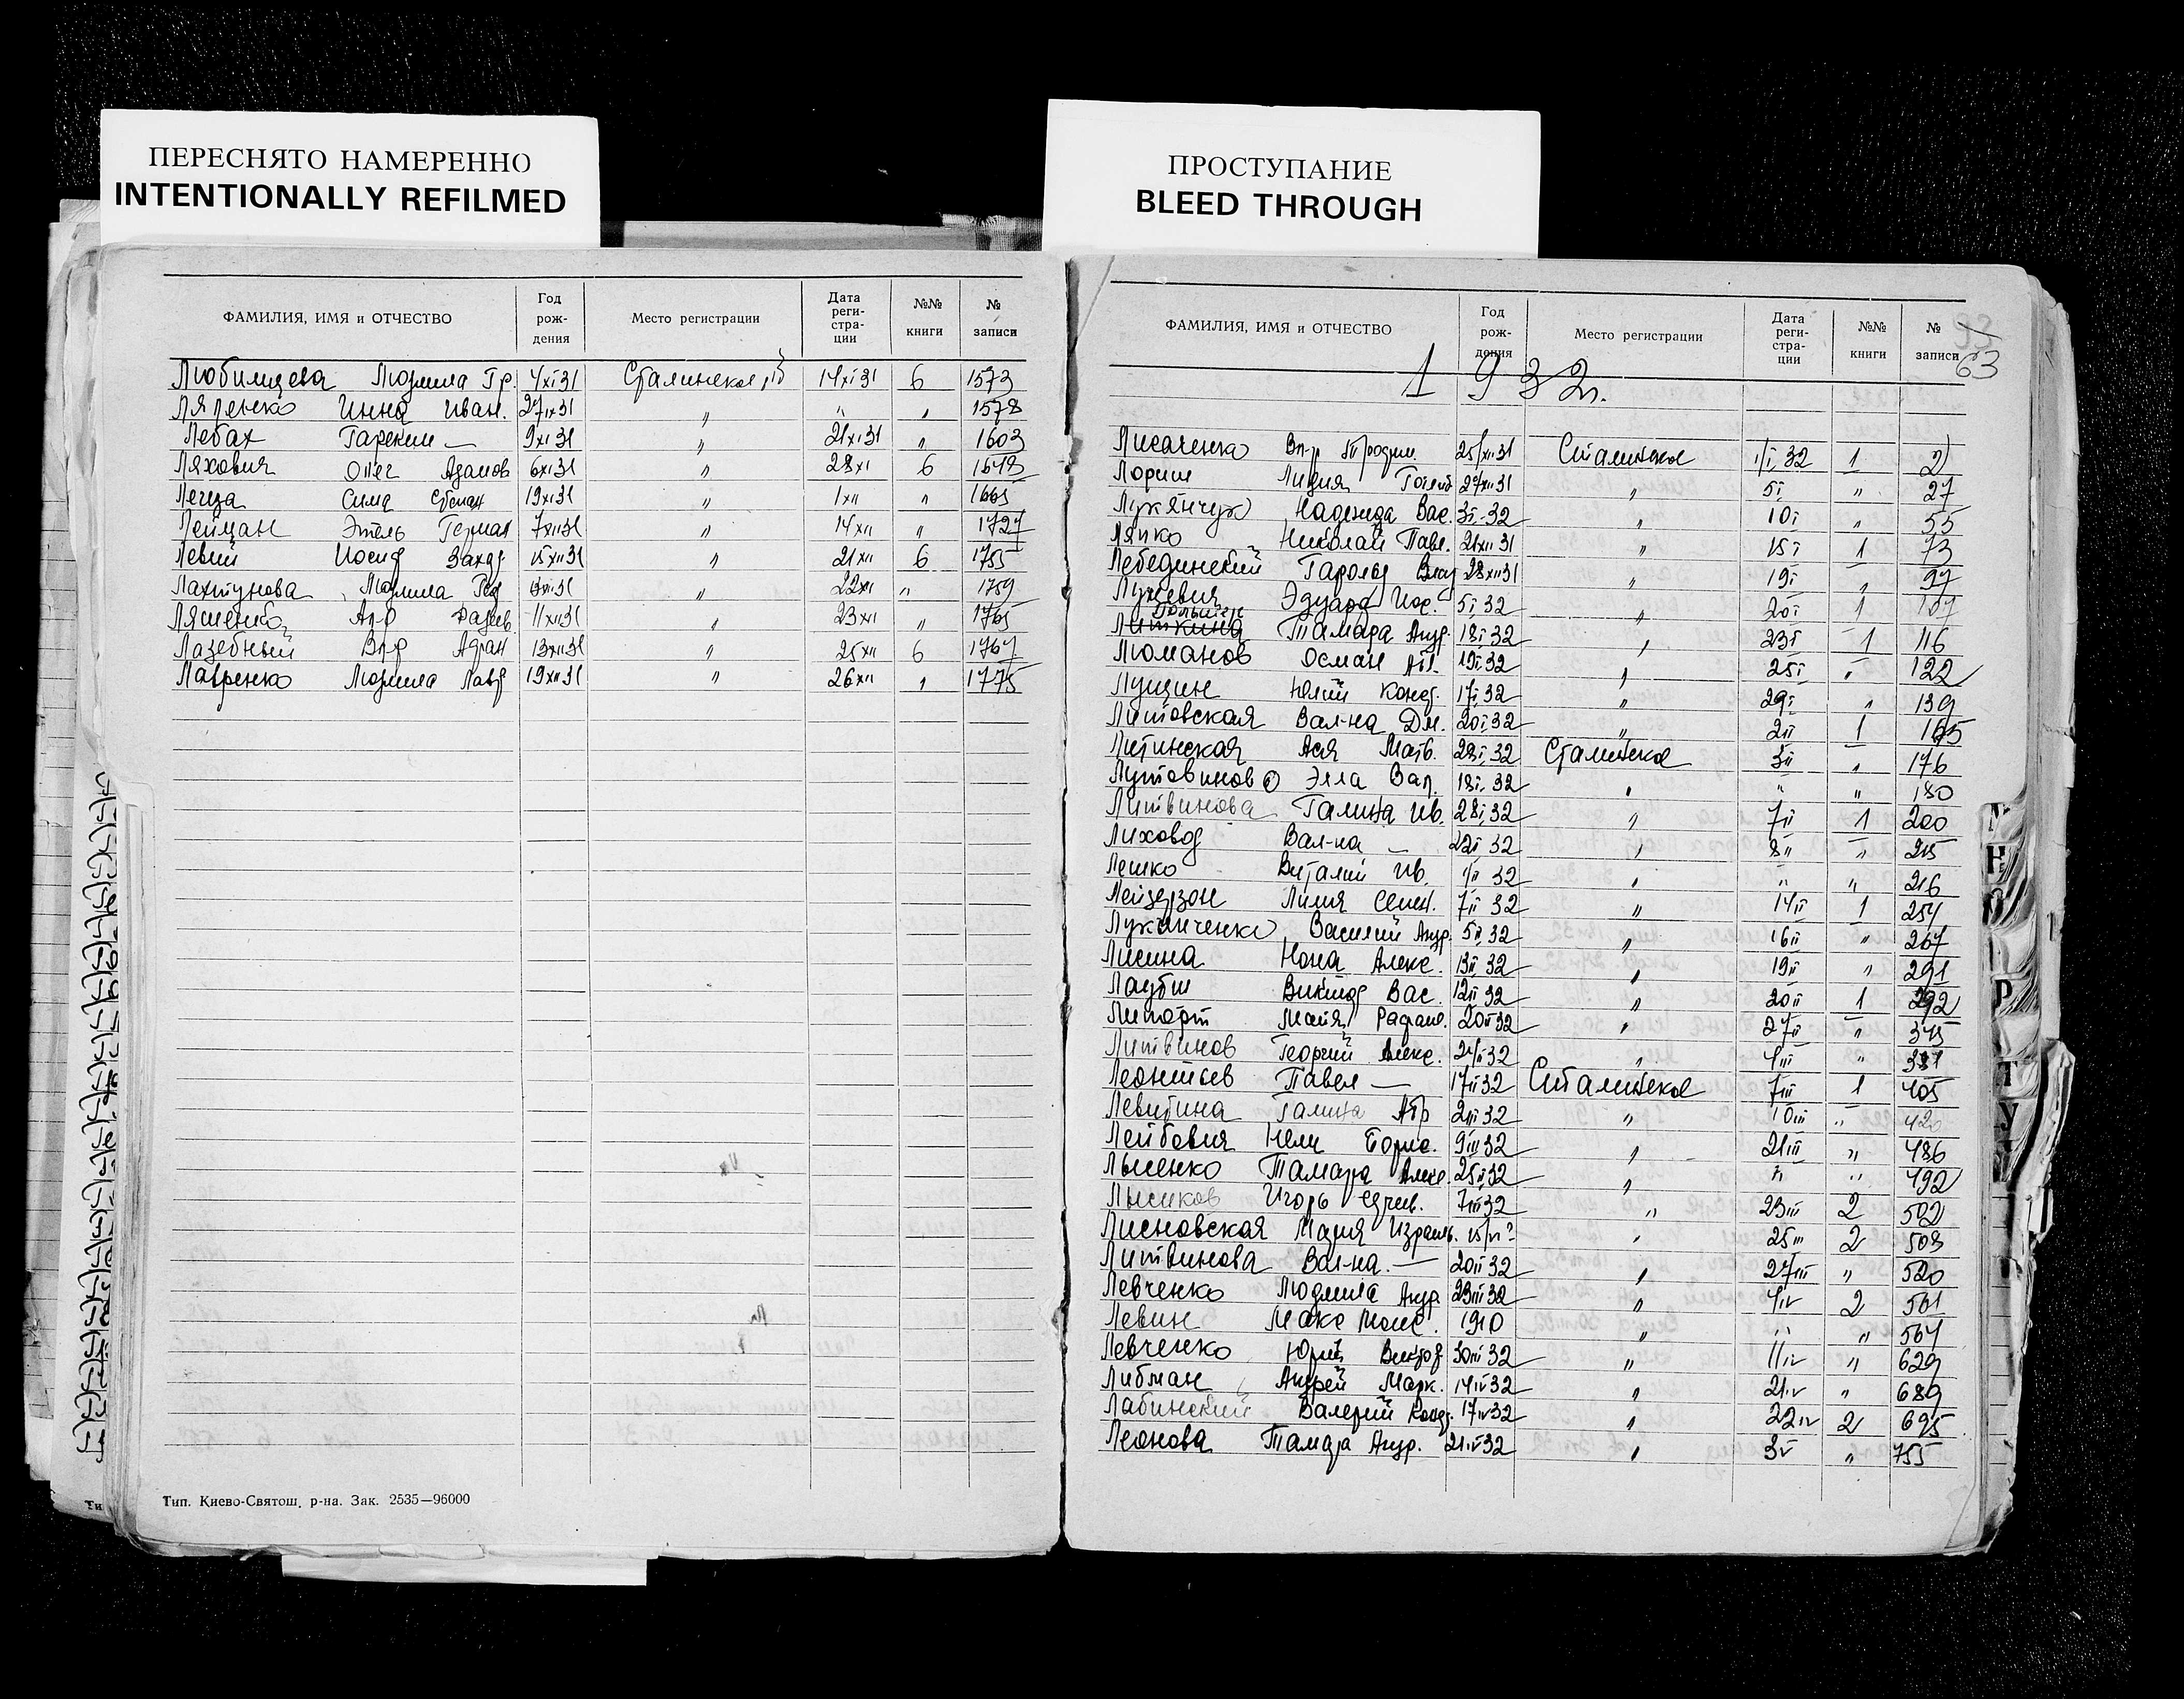 ПЕРЕСНЯТО НАМЕРЕННО
INTENTIONALLY REFILMED
ПРОСТУПАНИЕ
BLEED THROUGH
ФАМИЛИЯ, ИМЯ и ОТЧЕСТВО Год рож- дения Место регистрации Дата реги- стра- ции №№ книги № записи
Любимцева Людмила Гр. 4 XI 31 Сталинское 14 XI 31 6 1573
Ляленко Инна Иван. 31 " " " 1578
Лебах 9 XI 31 " 21 XI 31 " 1603
Ляхович Олег Адамов 6 XI 31 " 28 XI 6 1648
Сима 19 XI 31 " 1 XII " 1665
Лейман Этель Герман 7 XII 31 " 14 XII " 1727
Левий Иосиф Захар 15 XII 31 " 21 XII 6 1755
Лахтунова Людмила 31 " 22 XII " 1759
Ляшенко 11 XII 31 " 23 XII " 1765
Лазебный Вл-р Адам 13 XII 31 " 25 XII 6 1767
Лавренко Людмила 19 XII 31 " 26 XII " 1775
Тип. Киево-Святош. р-на. Зак. 2535—96000
ФАМИЛИЯ, ИМЯ и ОТЧЕСТВО Год рож- дения Место регистрации Дата реги- стра- ции №№ книги № записи
63
1932г.
Лисаченко Вл-р 25/XII 31 Сталинское 1/I 32 1 2
Лидия 31 " 5 I " 27
Лукянчук Надежда Вас. 3 I 32 " 10 I " 55
Ляпко Николай Павл. 21 XII 31 " 15 I 1 73
Лебединский Гарольд 28 XII 31 " 19 I " 97
Луцевич Эдуард Иос. 5 I 32 " 20 I 1 107
Тамара Андр. 18 I 32 " 23 I 1 116
Люманов Осман 19 I 32 " 25 I " 122
Лущин Юлий Конд. 17 I 32 " 29 I " 139
Литовская Вал-на Дм. 20 I 32 " 2 II 1 165
Литинская Ася Матв. 28 I 32 Сталинское 3 II " 176
Лутовинов Элла 18 I 32 " " " 180
Литвинова Галина Ив. 28 I 32 " 7 II 1 200
Лиховод Вал-на — 22 I 32 " 8 II " 215
Лешко Виталий Ив. 1 II 32 " " " 216
Лейзерзон Лилия Семен. 7 II 32 " 14 II 1 254
Луканченко Василий Андр. 5 II 32 " 16 II " 267
Лисина Нона Алекс. 13 II 32 " 19 II " 291
Виктор Вас. 12 II 32 " 20 II 1 292
Липорт Майя Рафаил. 20 II 32 " 27 II " 345
Литвинов Георгий Алекс. 32 " 4 III "
Леонтьев Павел — 17 II 32 Сталинское 7 III 1 405
Левитина Галина 2 III 32 " 10 III " 420
Лейбович Нели Борис. 9 III 32 " 21 III " 486
Лысенко Тамара Алекс. 25 II 32 " " " 492
Лысиков Игорь 7 III 32 " 23 III 2 502
Лисновская Мария Израиль. " 25 III 2 508
Литвинова Вал-на — 20 II 32 " 27 III " 520
Левченко Людмила Андр. 23 III 32 " 4 IV 2 561
Левин Макс Моис. 1910 " " " 564
Левченко Юрий Виктор 30 III 32 " 11 IV " 629
Либман Андрей Марк. 14 IV 32 " 21 IV " 689
Лабинский Валерий Конд. 17 IV 32 " 22 IV 2 695
Леонова Тамара Андр. 21 IV 32 " 3 V " 755